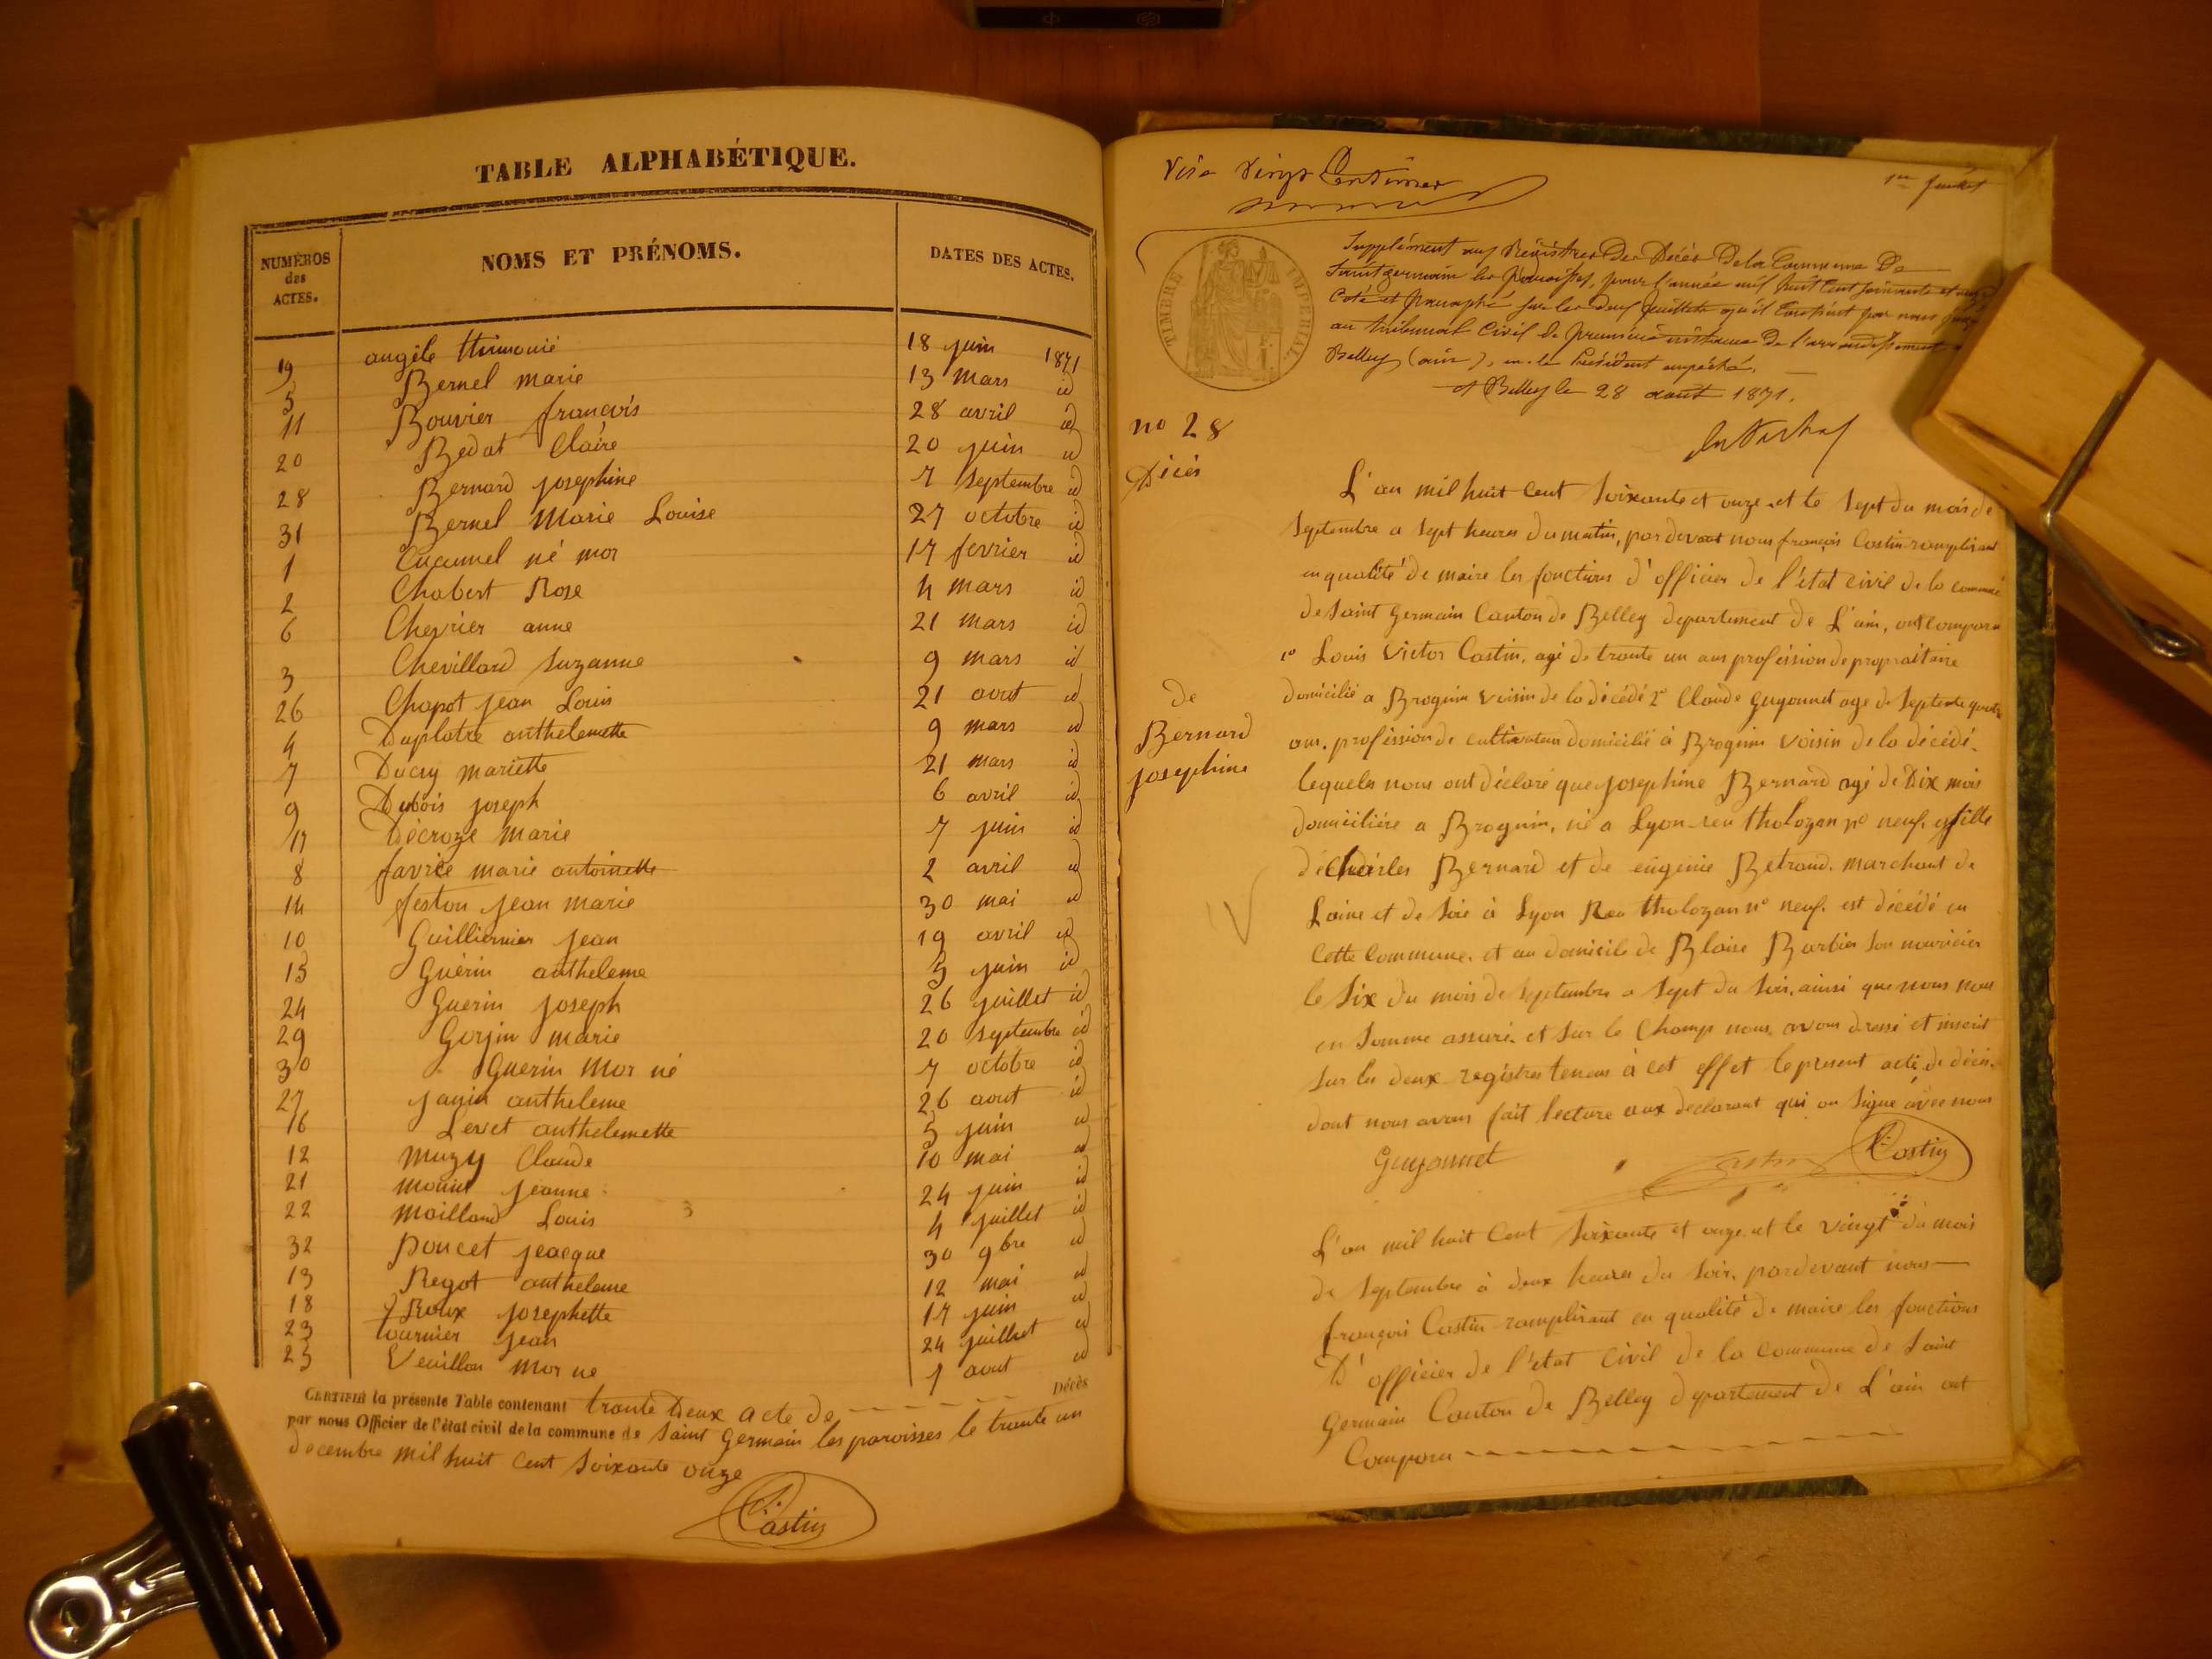 TABLE ALPHABÉTIQUE.
NUMÉROS des ACTES. NOMS ET PRÉNOMS. DATES DES ACTES.
19 angèle 18 juin 1871
5 Bernel marie 13 mars id
11 Bouvier françois 28 avril id
20 Bedat Claire 20 juin id
28 Bernard josephine 7 septembre id
31 Bernel Marie Louise 27 octobre id
1 né mor 17 fevrier id
2 Chabert Rose 4 mars id
6 Chevrier anne 21 mars id
3 Chevillard Suzanne 9 mars id
26 Chapot jean Louis 21 aout id
4 Duplatre anthelemette 9 mars id
7 Ducry mariette 21 mars id
9 Dubois joseph 6 avril id
17 Décroze Marie 7 juin id
8 favre marie antoinette 2 avril id
14 feston jean marie 30 mai id
10 Guilliermier jean 19 avril id
15 Guérin antheleme 5 juin id
24 Guerin joseph 26 juillet id
29 Gorjin marie 20 septembre id
30 Guerin Mor né 7 octobre id
27 Janin antheleme 26 aout id
16 Levet anthelemette 5 juin id
12 Muzy Claude 10 mai id
21 jeanne 24 juin id
22 Mailland Louis 4 juillet id
32 Poncet jeacque 30 9bre id
13 Regot antheleme 12 mai id
18 Roux josephette 17 juin id
23 tournier jean 24 juillet id
25 Veuillon Mor ne 1 aout id
CERTIFIÉ la présente Table contenant trante Deux acte de Décès
par nous Officier de l'état civil de la commune de Saint Germain les paroisses le trante un
decembre mil huit Cent Soixante onze
Costin
Visé Vingt Centimes
1er feuillet
TIMBRE IMPÉRIAL.
Supplément aux Registres Des Décès De la Commune De
Saint germain les paroisses, pour l'année mil huit Cent soixante et onze
Coté et paraphé sur les deux feuillets qu'il Contient par nous juge
au tribunal Civil de première instance De l'arrondissement
Belley (ain), m. le Président empêché.
A Belley le 28 août 1871.
no 28
Décès
de
Bernard
josephine
L'an mil huit Cent Soixante et onze et le Sept du mois de
Septembre a Sept heures du matin, par devant nous françois Costin ramplisant
en qualité de maire les fonctions d'officier de l'état civil de la commune
de Saint Germain Canton de Belley departement de L'ain, ont Comparu
1o Louis Victor Costin, agé de trante un ans profession de propraitaire
domicilié a Brognin Voisin de la décédé 2o Claude guyonnet age de Septente quatre
ans. profession de cultivateur domicilié à Brognin Voisin de la décédé.
lequels nous ont déclaré que josephine Bernard agé de Dix mois
domiciliére a Brognin, né a Lyon reu tholozan no neuf. fille
de Charles Bernard et de eugénie Betrand. marchant de
Laine et de Soie à Lyon Reu tholozan no neuf. est décédé en
Cette Commune. et au domicile de Blaise Barbier Son nouricier
le Six du mois de Septembre a Sept du Soir. ainsi que nous nous
en Somme assuré. et Sur le Champ nous avons dressé et inscrit
Sur les deux registres tenus à cet effet le present acte de décès.
dont nous avons fait lecture aux declarant qui on Signé avec nous
Guyonnet Costin Costin
L'an mil huit Cent Soixante et onze. et le vingt du mois
de Septembre à deux heures du Soir. pardevant nous
françois Costin ramplisant en qualité de maire les fonctions
D'officier de l'état Civil de la Commune de Saint
Germain Canton de Belley departement de L'ain ont
Comparu